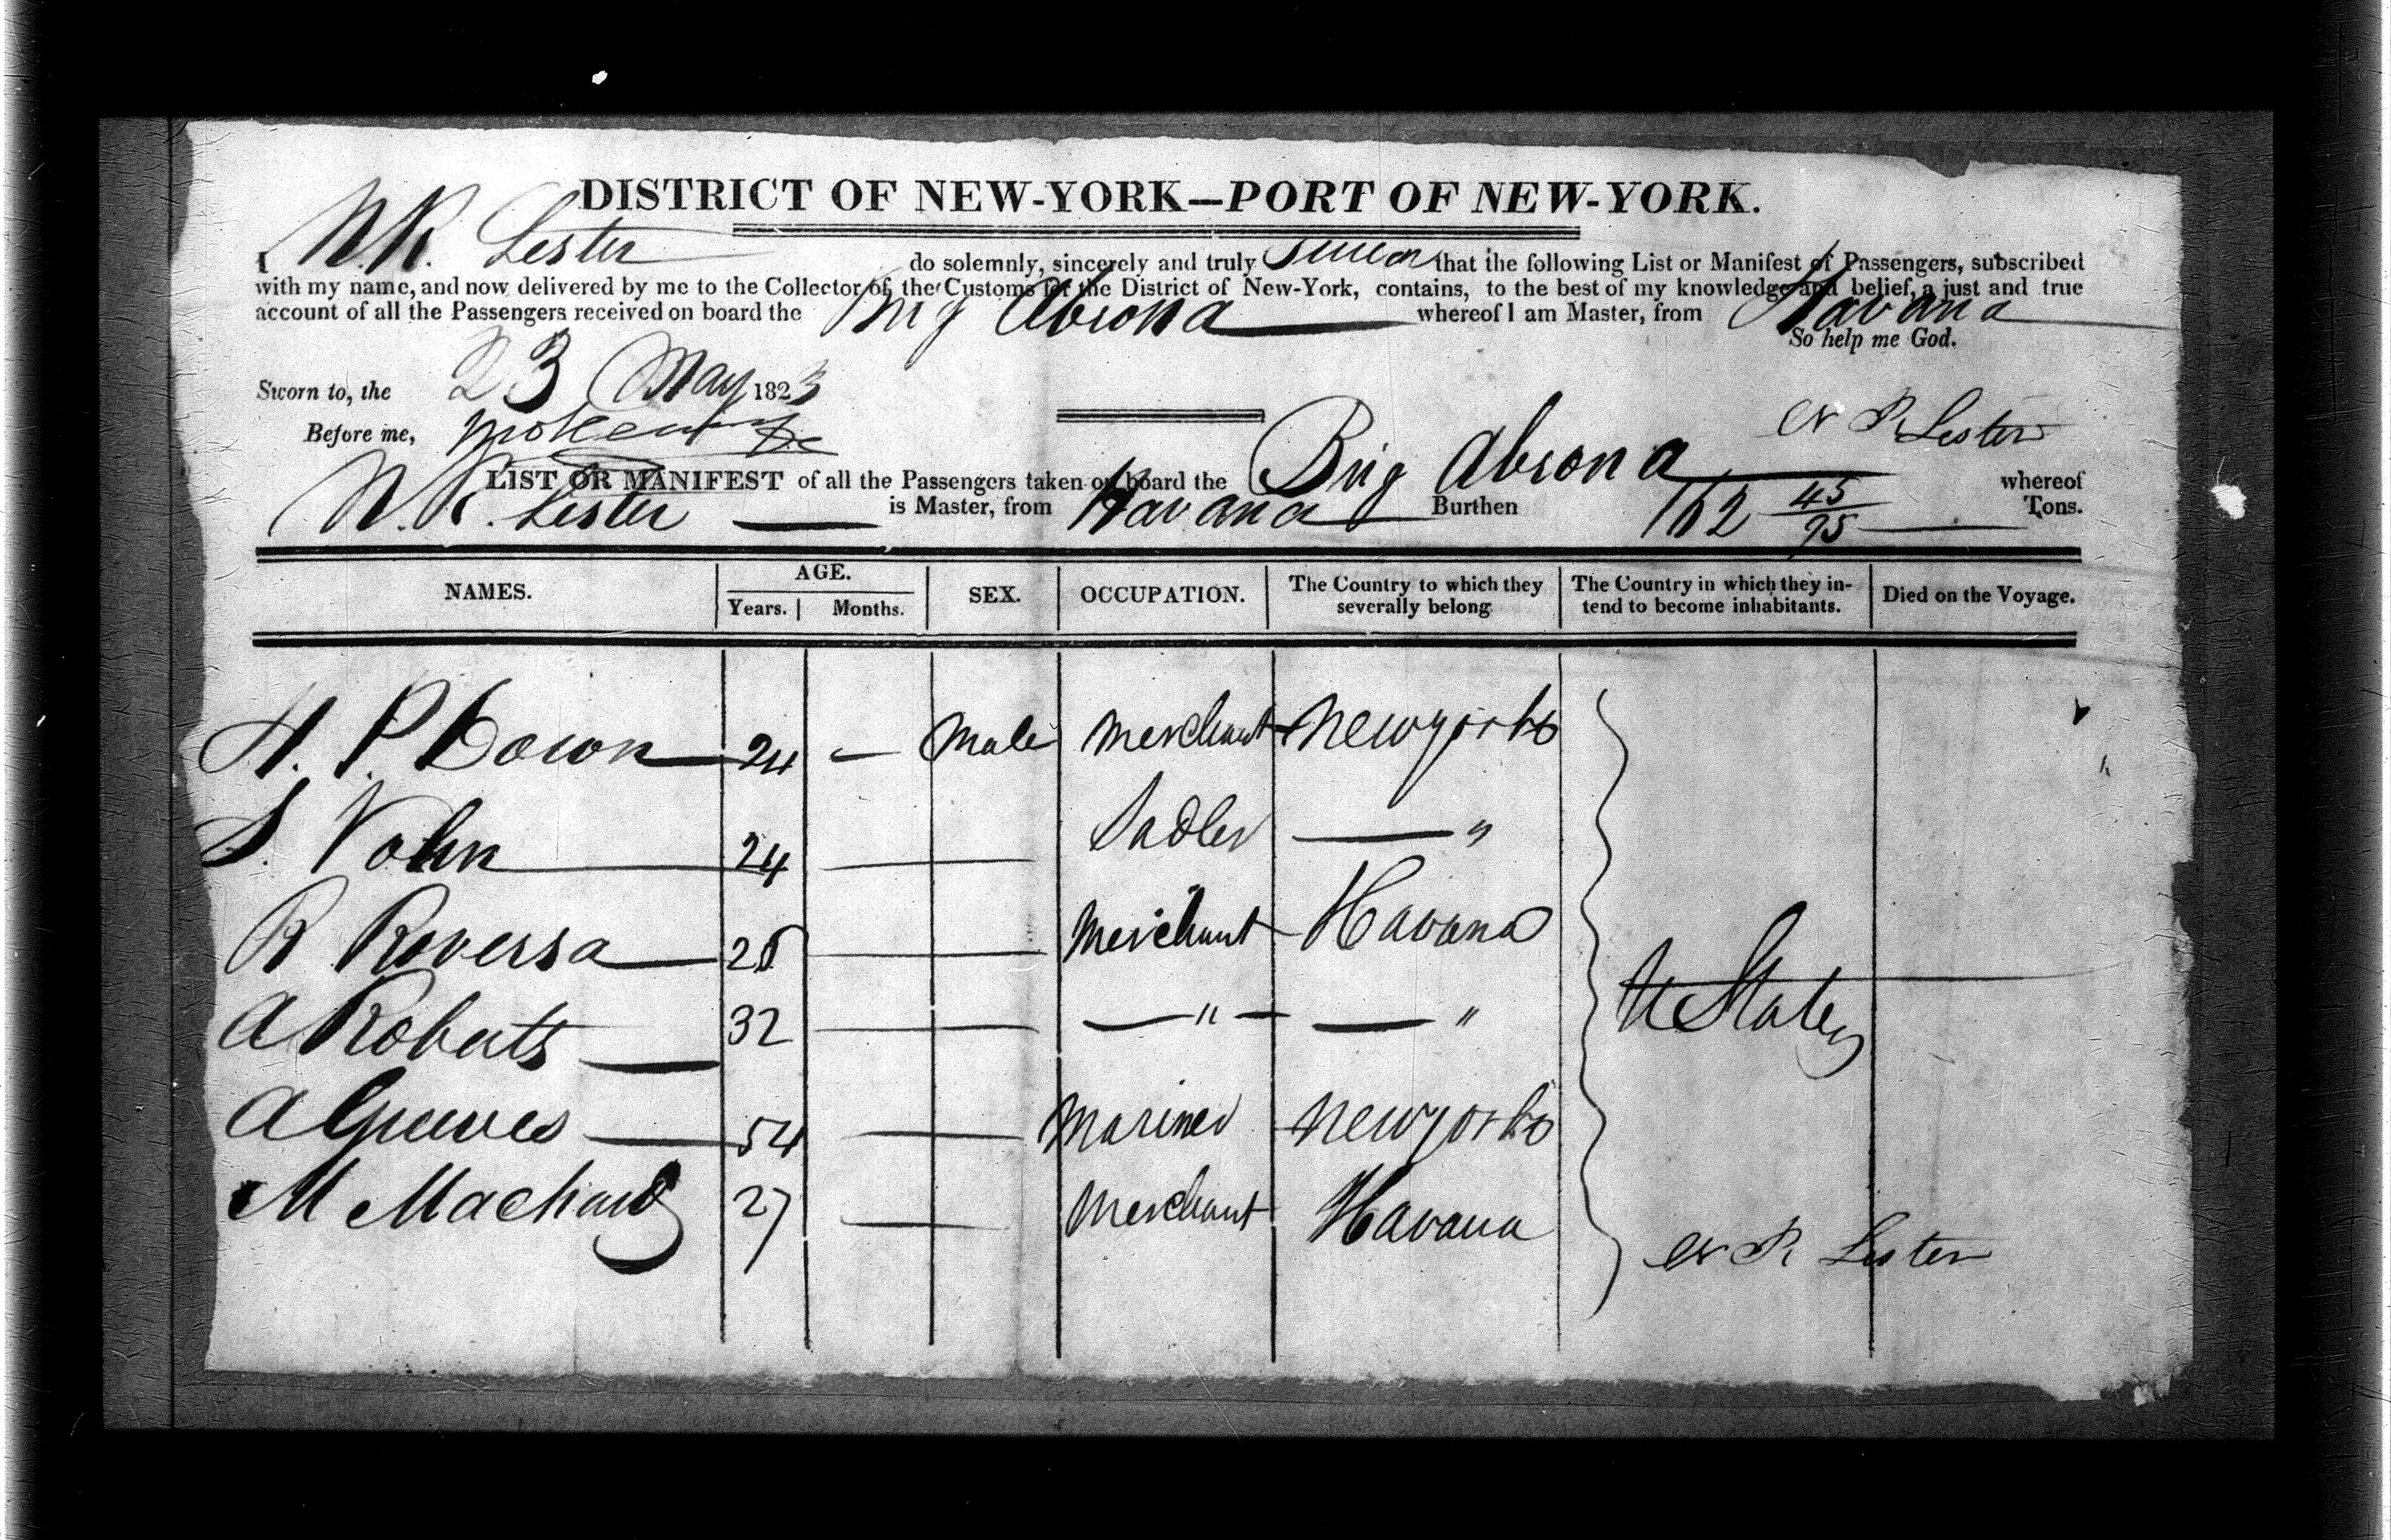 DISTRICT OF NEW-YORK—PORT OF NEW-YORK.
I N. R. Lester do solemnly, sincerely and truly Swear that the following List or Manifest of Passengers, subscribed
with my name, and now delivered by me to the Collector of the Customs for the District of New-York, contains, to the best of my knowledge and belief, a just and true
account of all the Passengers received on board the Brig Abrona whereof I am Master, from Havana
So help me God.
Sworn to, the 23 May 1823
Before me,
N R Lester
LIST OR MANIFEST of all the Passengers taken on board the Brig Abrona whereof
N. R. Lester is Master, from Havana Burthen 162 45/95 Tons.
NAMES. AGE. Years. Months. SEX. OCCUPATION. The Country to which they severally belong The Country in which they intend to become inhabitants. Died on the Voyage.
H. P. Down 24 — Male Merchant New york
S. Vohn 24 — Sadler — "
R Roversa — Merchant Havana
A Roberts 32 — — " — — "
U States
A Greeves 54 — Mariner New york
M Machado 27 — Merchant Havana
N R Lester